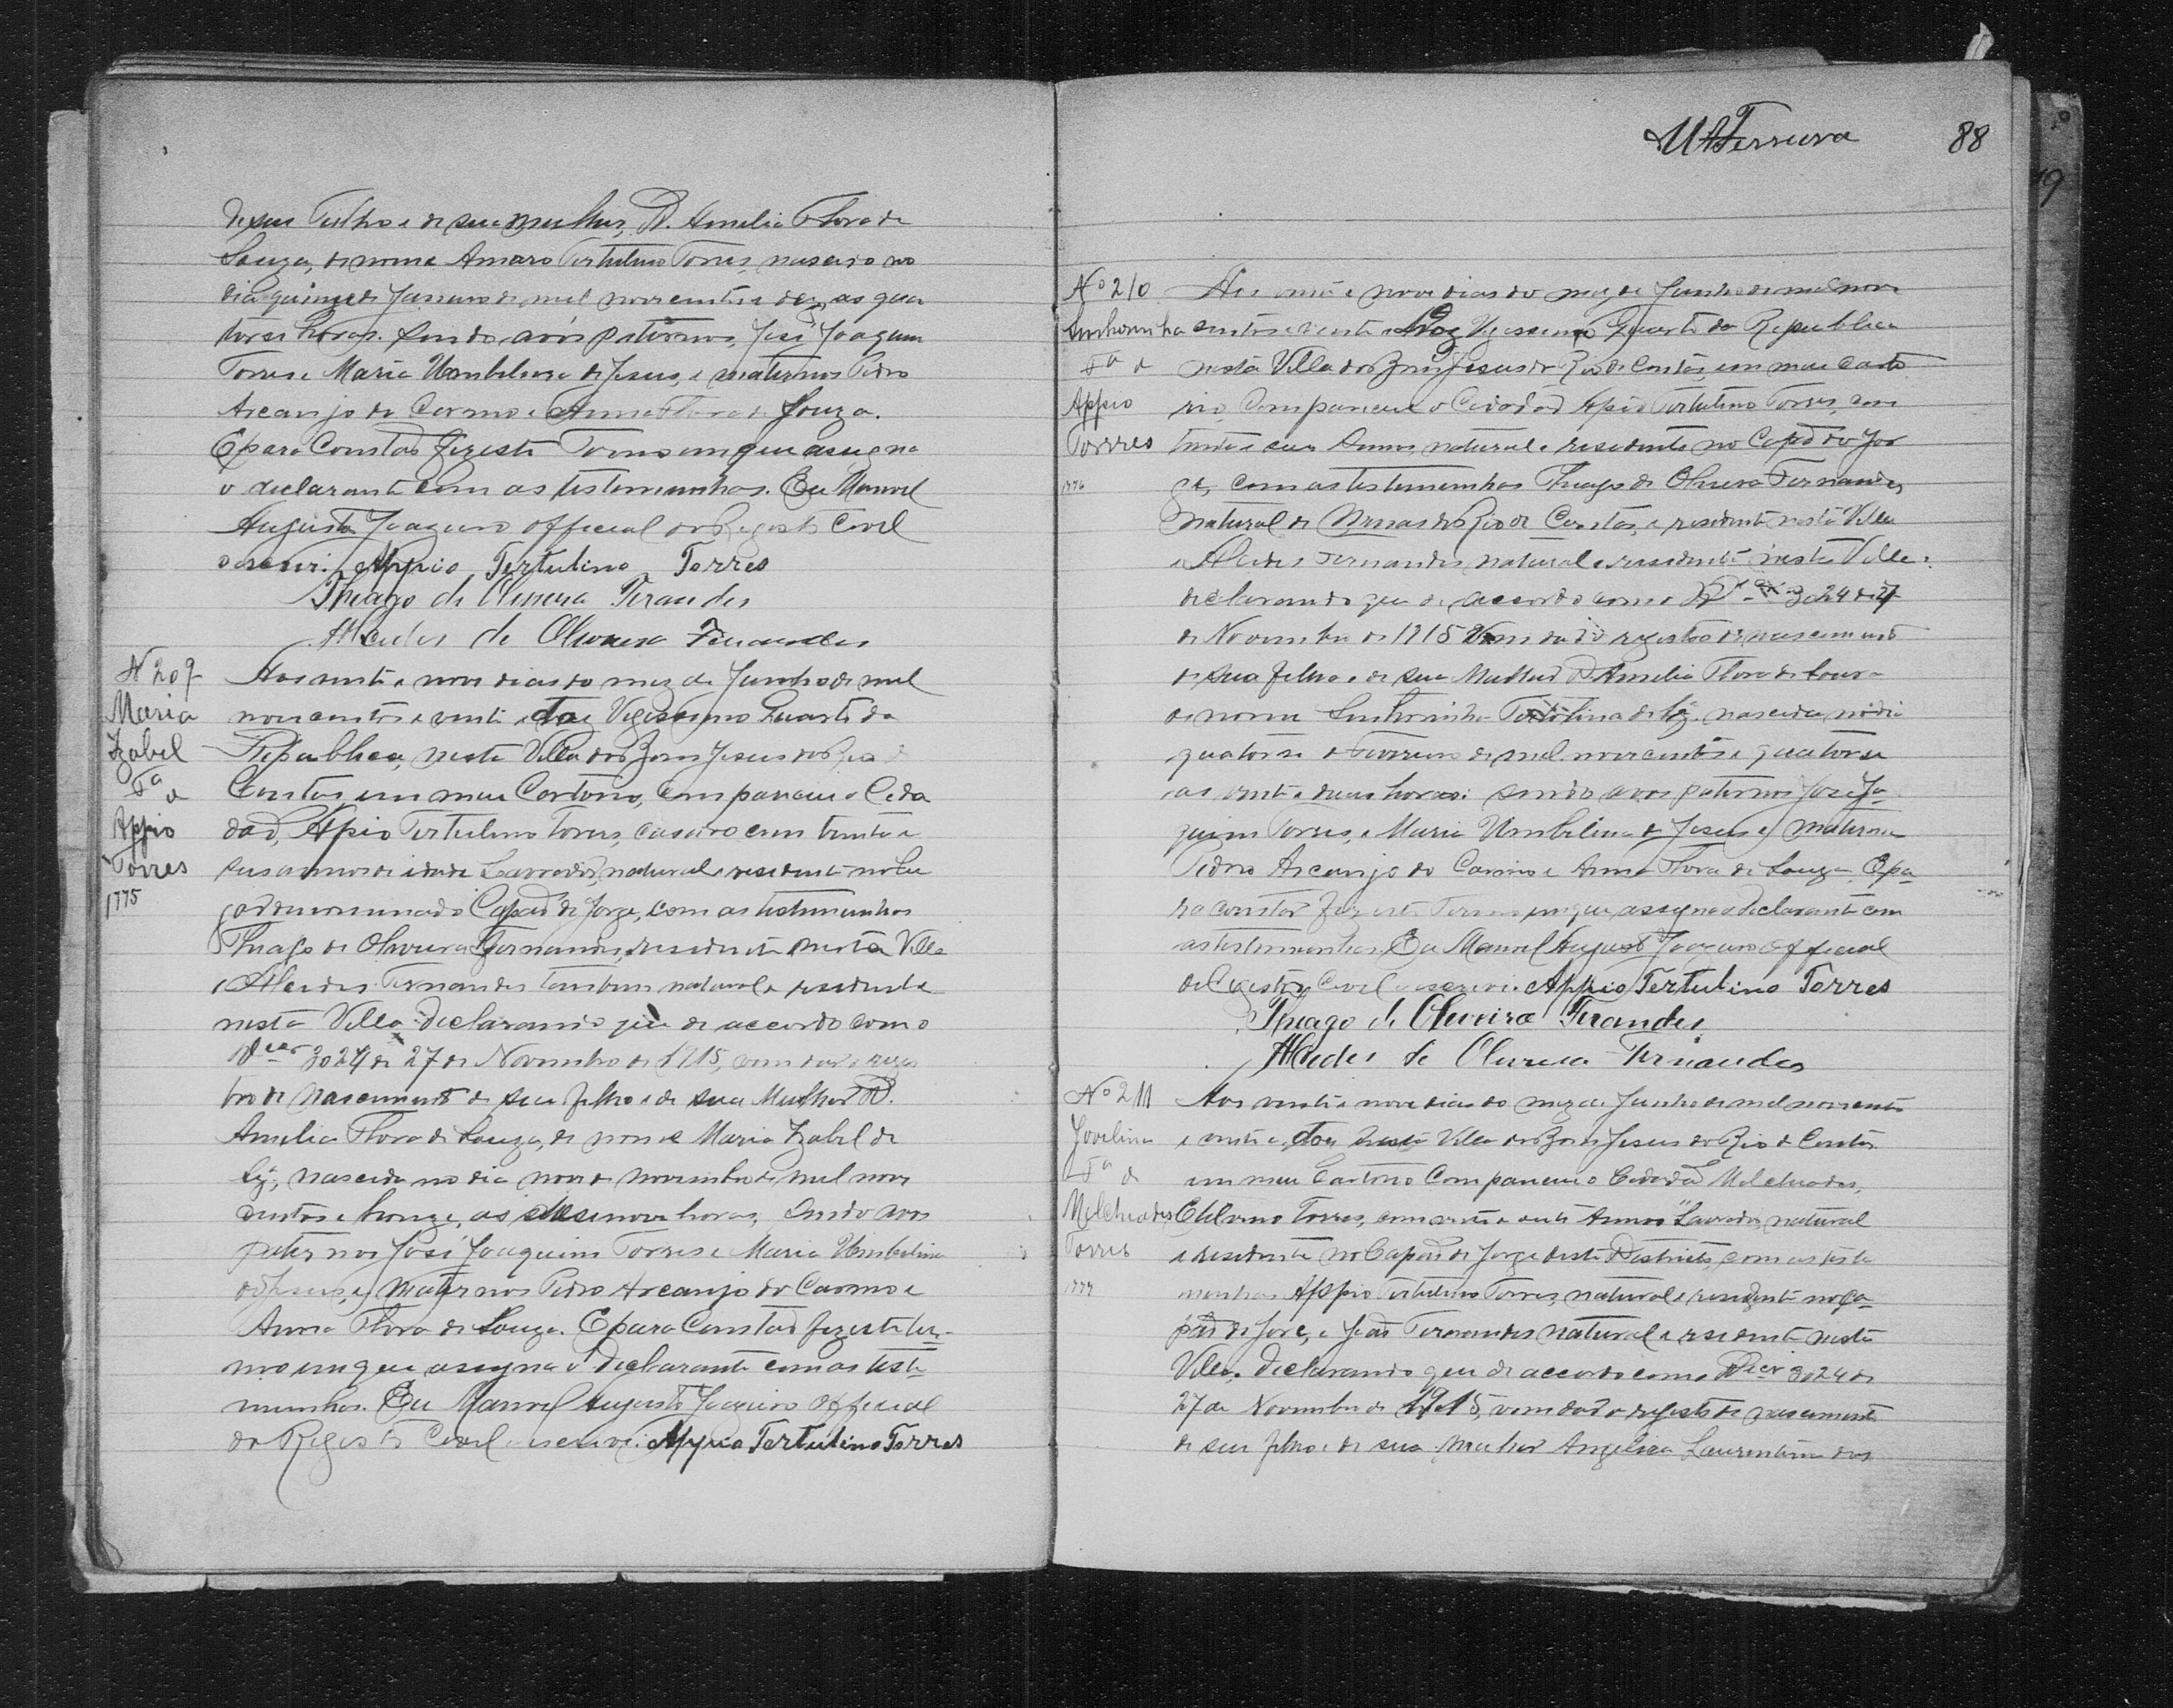 de seu filho e de sua mulher, D. Amelia Flora de
Souza, de nome Amaro Tertulino Torres, nascido no
dia quinze de Janeiro de mil novecentos e dez, as qua
torse horas. Sendo avós paternos, José Joaquim
Torres e Maria Umbelina de Jesus, e maternos Pedro
Arcanjo do Carmo e Anna Flora de Souza.
E para constar fiz este Termo em que assigna
o declarante com as testemunhas. Eu Manoel
Augusto Joazeiro official do Registo Civil
o escrevi. Appio Tertulino Torres
Thiago de Oliveira Ferandes
Alcides de Oliveira Fernandes
Nº 209
Maria
Izabel
Fª
d
Appio
Torres
1775
Aos vinte e nove dias do mez de Junho de mil
novecentos e vinte e doz Vigessimo Quarto da
Republica, nesta Villa do Bom Jesus do Rio d
Contas em meu Cartorio, compareceu o Cida
dão, Apio Tertulino Torres, casado com trinta e
seis annos de idade Lavrador, natural e residente no lu
gar denominado Capão de Jorge, com as testemunhas
Thiago de Oliveira Fernandes, residente nesta Villa
e Alcides Fernandes tambem natural e residente
nesta Villa. Declarando que de accordo com o
Decr 3024 de 27 de Novembro de 1915, vem dar o regis
tro de nascimento de seu filho e de sua Mulher D.
Amelia Flora de Souza, de nome Maria Izabel de
, nascida no dia nove de novembro de mil nove
centos e honze, as desenove horas, Sendo avos
paternos José Joaquim Torres e Maria Umbelina
de Jesus, e maternos Pedro Arcanjo do Carmo e
Anna Flora de Souza. E para Constar fiz este ter-
mo em que assigna o declarante com as teste
munhas. Eu Manoel Augusto Joazeiro official
do Registo Civil o escrevi. Appio Tertulino Torres
MAFerreira 88
Nº 210
Sinhorinha
Fª d
Appio
Torres
1776
Aos vinte e nove dias do mez de Junho de mil nove
centos e vinte e doz Vigessimo Quarto da Republica
nesta Villa do Bom Jesus do Rio de Contas, em meu Carto
rio, Compareceu o Cidadão Apio Tertulino Torres, com
trinta e seis Annos, natural e residente no Capão do Jor
ge, com as testemunhas Thiago de Oliveira Fernandes
natural de Minas do Rio de Contas, e residente nesta Villa
e Alcides Fernandes, natural e residente nesta Villa.
declarando que de accordo com o 3024 de 27
de Novembro de 1915 Vem dar o registo de nascimento
de sua filha e de sua Mulher D. Amelia Flora de Souza
de nome Sinhorinha Tertolina de nascida no dia
quatorse d Fevereiro de mil novecentos e quatorse
as vinte e duas horas: sendo avos paternos José Joa-
quim Torres, e Maria Umbelina d Jesus e maternos
Pedro Arcanjo do Carmo e Anna Flora de Souza. E pa-
ra constar fiz este Termo em que assigna o declarante com
as testemunhas. Eu Manoel Augusto Joazeiro official
do Registo Civil o escrevi. Appio Tertulino Torres
Thiago de Oliveira Ferandes
Alcides de Oliveira Fernandes
Nº 211
Jovelina
Fª d
Melchiades
Torres
1777
Aos vinte e nove dias do mez de Junho de mil novecentos
e vinte e, doz nesta Villa do Bom Jesus do Rio d Contas
em meu Cartorio Compareceu o Cidadão Melchiades,
Torres, com trinta e sete Annos Lavrador, natural
e residente no Capão de Jorge deste Districto, com as teste
munhas Appio Tertulino Torres, natural e residente no Ca-
pão de Jorge, e João Fernandes natural e residente nesta
Villa. Declarando que de accordo com o Decr 3024 de
27 de Novembro de 1915, vem dar o registo de nascimento
de seu filho e de sua mulher Angelica Laurentina dos